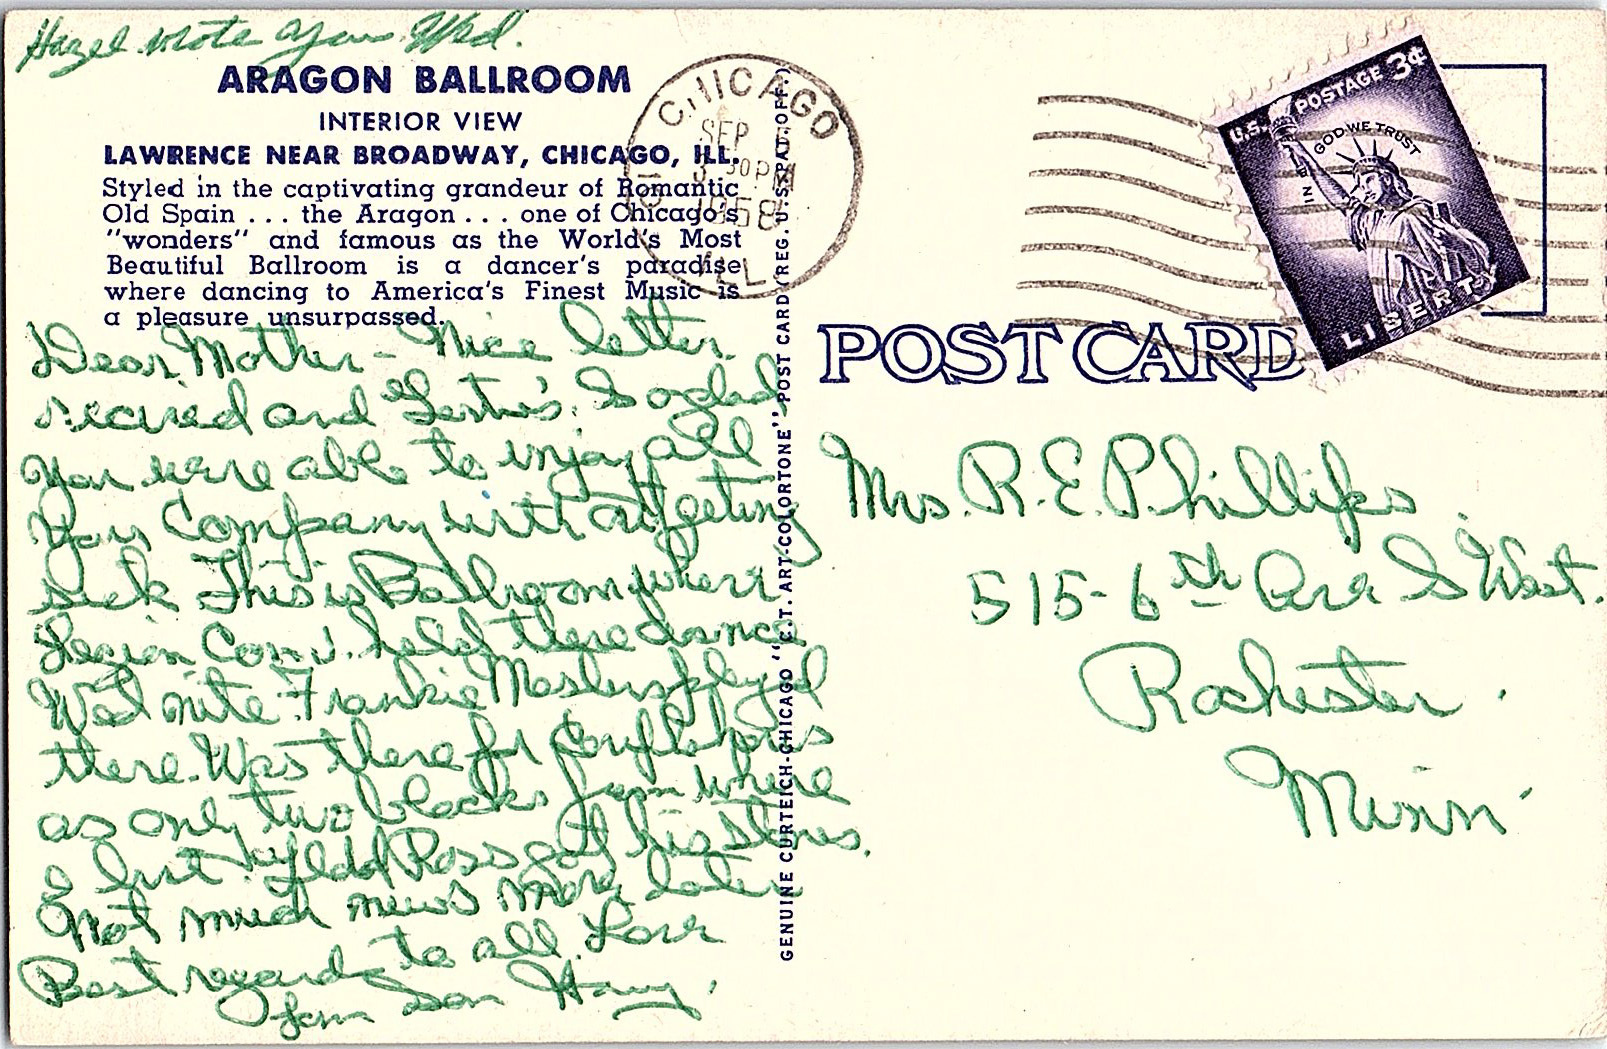 Hazel wrote you Wed.
ARAGON BALLROOM
INTERIOR VIEW
LAWRENCE NEAR BROADWAY, CHICAGO, ILL.
Styled in the captivating grandeur of Romantic
Old Spain . . . the Aragon . . . one of Chicago's
"wonders" and famous as the World's Most
Beautiful Ballroom is a dancer's paradise
where dancing to America's Finest Music is
a pleasure unsurpassed.
Dear Mother - Nice letter
recived and Gertie's. So glad
you were able to injoy all
your Company with out geting
sick This is Ballroom where
Legion Conv. held there dance
Wed nite. Frankie Masters played
there. Was there for
as only two blocks from where
I live Ross got his stores.
Not much news more later
Best regards to all. Love
from Son Harry.
GENUINE CURTEICH-CHICAGO "C.T. ART-COLORTONE" POST CARD (REG. U.S. PAT. OFF.)
CHICAGO
SEP
3 30 PM
1958
ILL
U.S. POSTAGE 3¢
IN GOD WE TRUST
LIBERTY
POST CARD
Mrs. R. E. Phillips
515 - 6th Ave S West.
Rochester.
Minn.